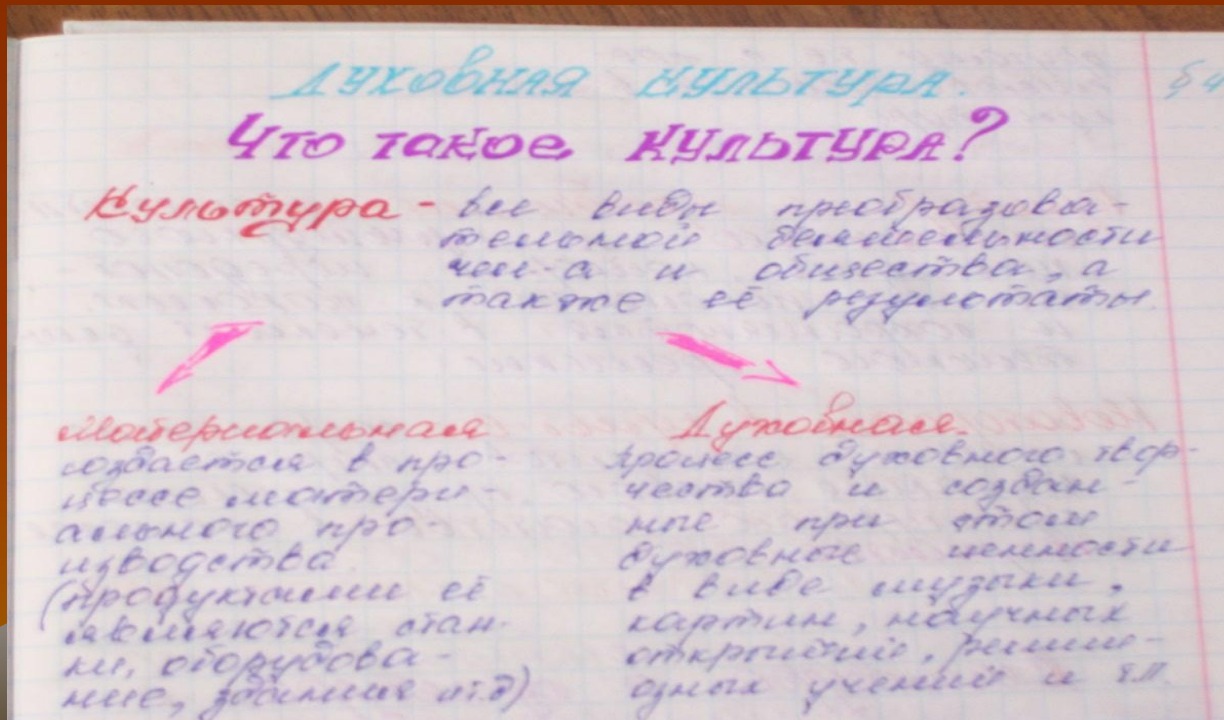 ДУХОВНАЯ КУЛЬТУРА.
§ 4
Что такое КУЛЬТУРА?
Культура - все виды преобразова-
тельной деятельности
чел-са и общества, а
также её результаты.
Материальная
создается в про-
цессе матери-
ального про-
изводства
(продуктами её
являются стан-
ки, оборудова-
ние, здания и т.д)
Духовная.
процесс духовного твор-
чества и создан-
ные при этом
духовные ценности
в виде музыки,
картин, научных
открытий, религи-
озных учений и т.п.